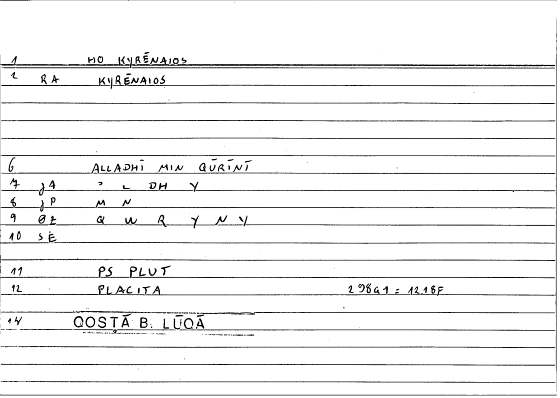 1 HO KYRĒNAIOS
2 RA KYRĒNAIOS
6 ALLADHĪ MIN QŪRĪNĪ
7 JA ʾ L DH Y
8 JP M N
9 ØE Q W R Y N Y
10 SE
11 PS PLUT
12 PLACITA 298G1 = 12.18F
14 QOSṬĀ B. LŪQĀ